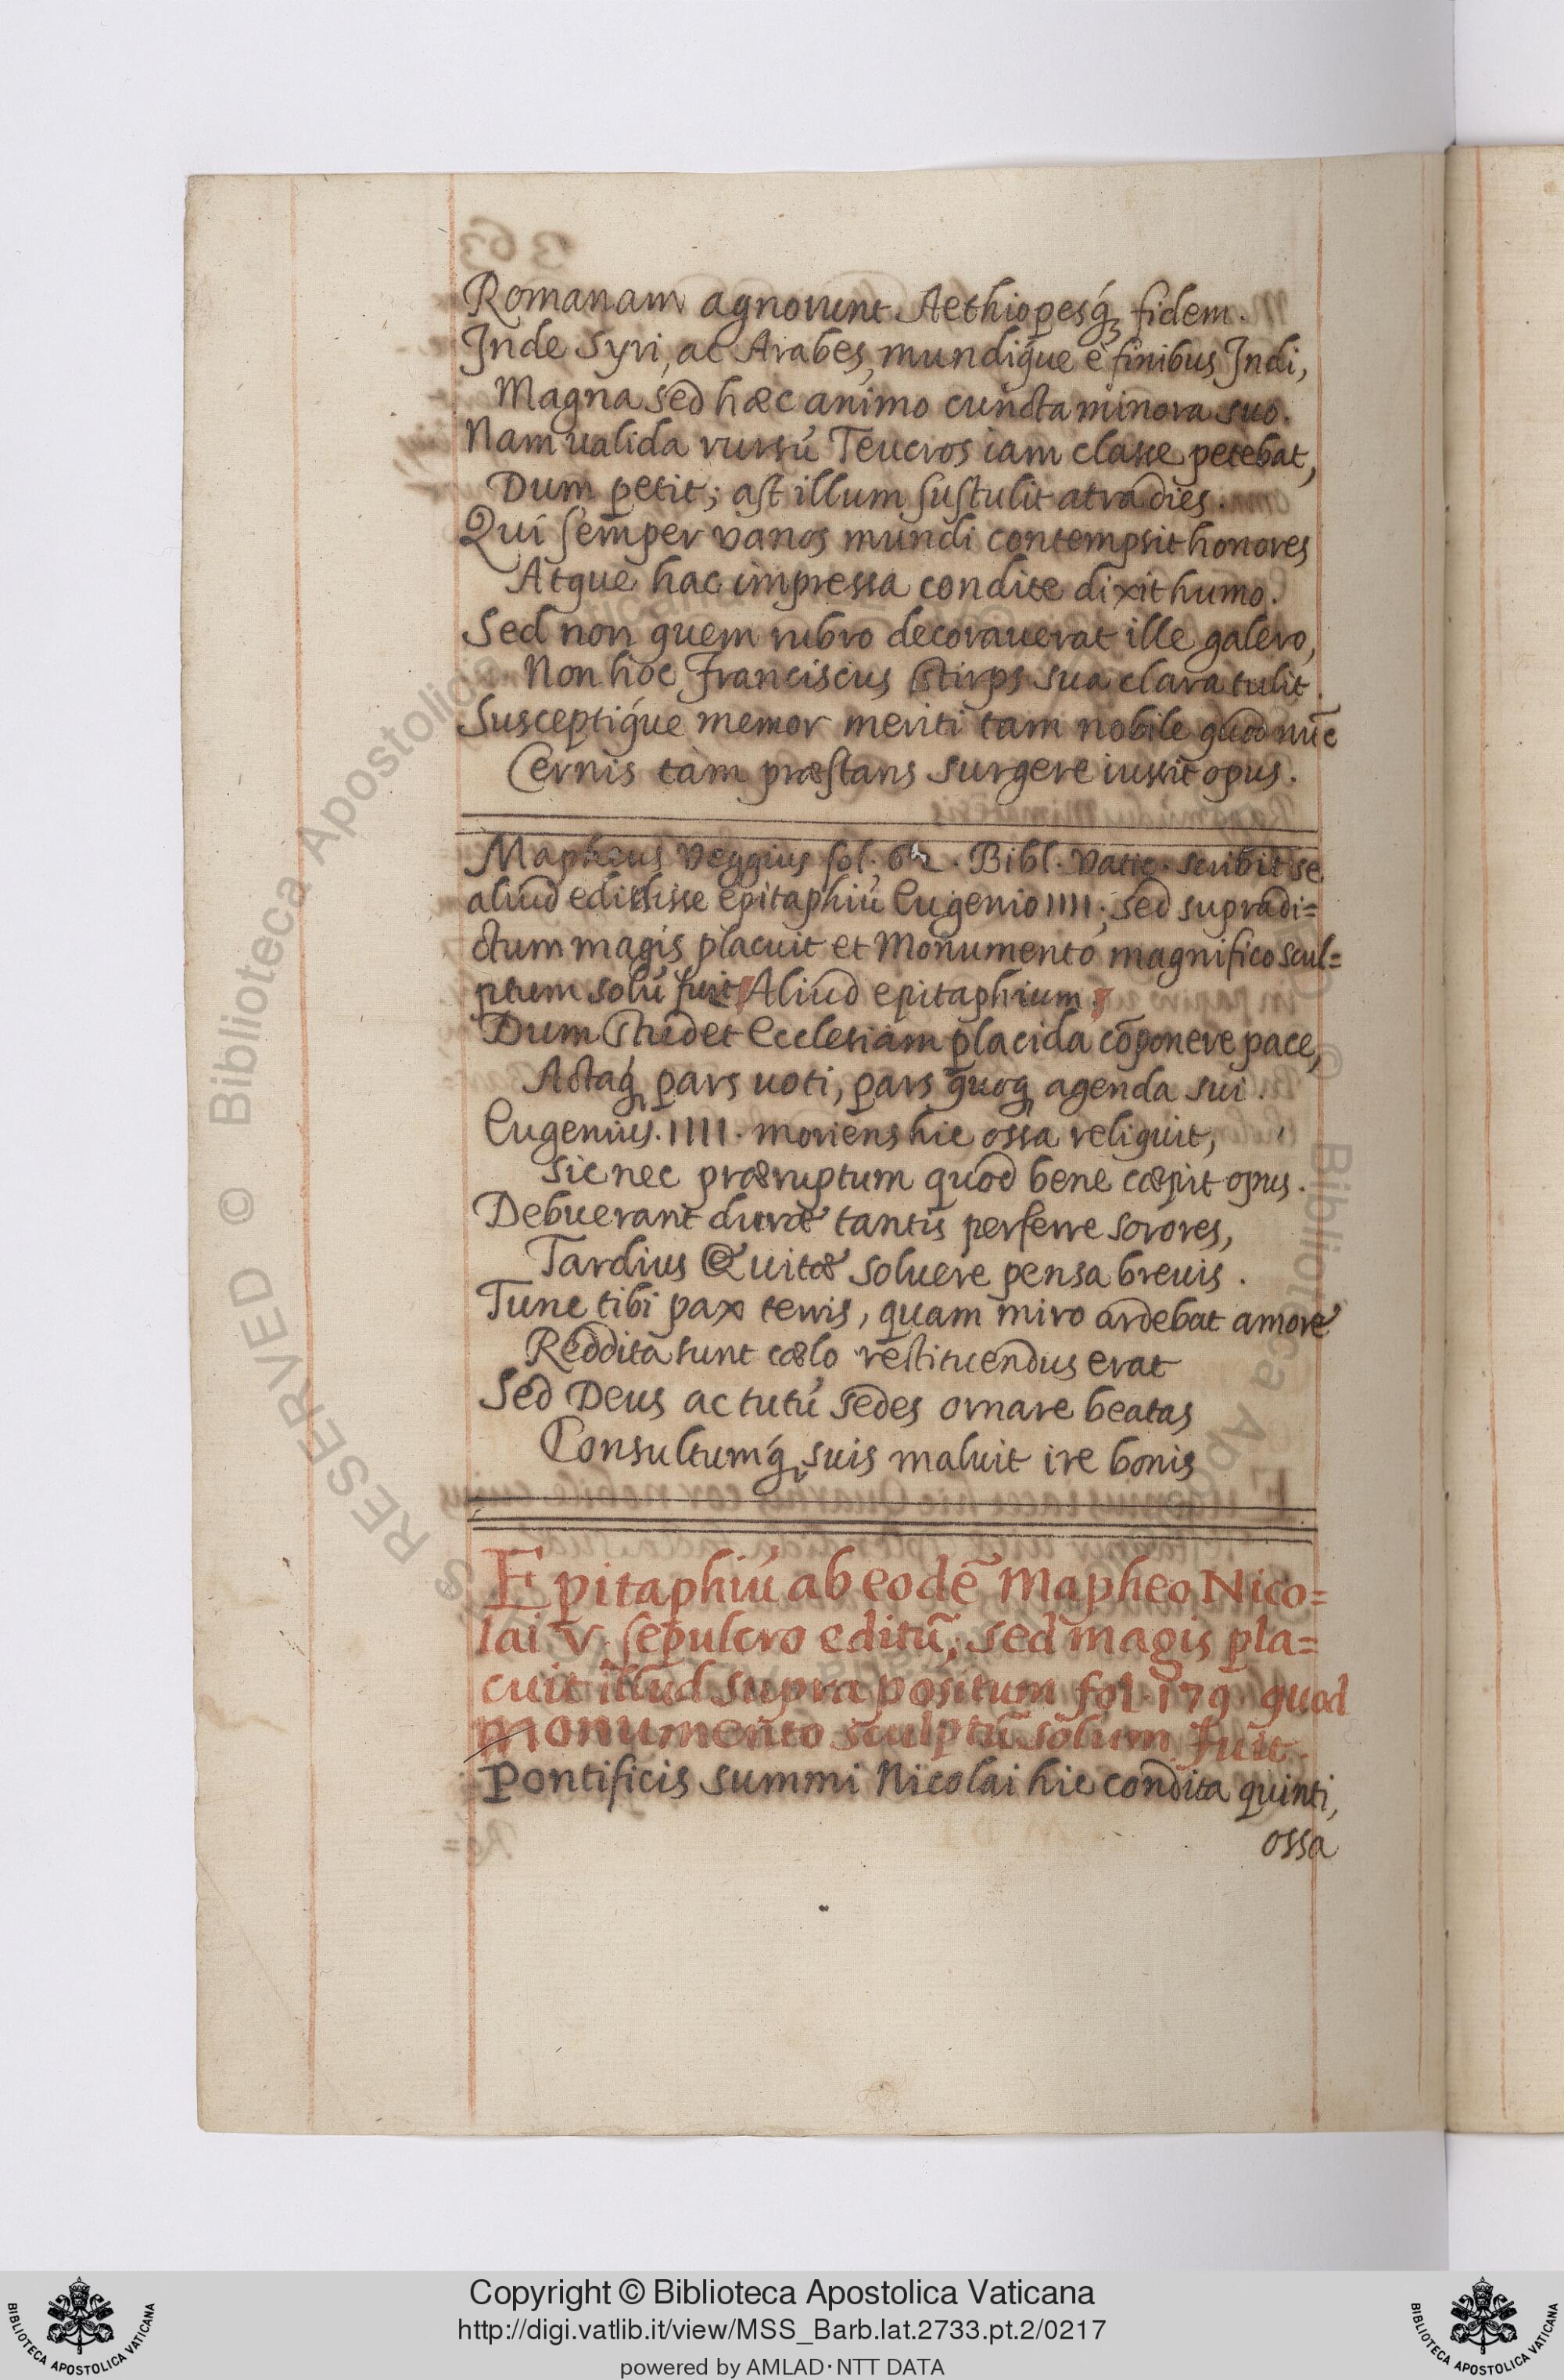 Romanam agnorunt Aethiopesq́ꝫ fidem.
Inde Syri, ac Arabes, mundiq́ue è finibus Indi,
Magna sed hæc animo cuncta minora suo.
Nam ualida rursú Teucros iam classe petebat,
Dum petit; ast illum sustulit atra dies.
Qui semper vanos mundi contempsit honores
Atque hac impressa condite dixit humo.
Sed non quem rubro decorauerat ille galero,
Non hoc Franciscus stirps sua clara tulit.
Susceptiq́ue memor meriti tam nobile quod nūc
Cernis tàm præstans surgere iussit opus.
Mapheus Veggius fol. 62. Bibl. Vatic. scribit se
aliud edidisse epitaphiú Eugenio IIII; sed supradi=
ctum magis placuit et Monumento magnifico scul=
ptum solú fuit Aliud epitaphium.
Dum studet Ecclesiam placida cōponere pace,
Actaq́ꝫ pars uoti, pars quoqꝫ agenda sui.
Eugenius. IIII. moriens hic ossa reliquit,
Sic nec præruptum quod bene cæpit opus.
Debuerant duræ tantis perferre sorores,
Tardius & uitæ soluere pensa breuis.
Tunc tibi pax terris, quam miro ardebat amore
Reddita sunt cælo restituendus erat
Sed Deus actutú sedes ornare beatas
Consultumq́ꝫ suis maluit ire bonis
Epitaphiú ab eodē Mapheo Nico=
lai V. sepulcro editū; sed magis pla=
cuit illud supra positum fol. 179. quod
monumento sculptū solum fuit.
Pontificis summi Nicolai hic condita quinti,
ossa
Copyright © Biblioteca Apostolica Vaticana
http://digi.vatlib.it/view/MSS_Barb.lat.2733.pt.2/0217
powered by AMLAD·NTT DATA